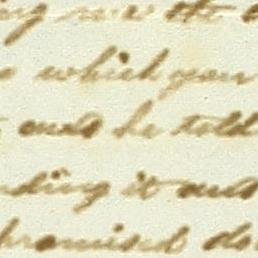 ing me the
which your
and he told
nding it and
promised do